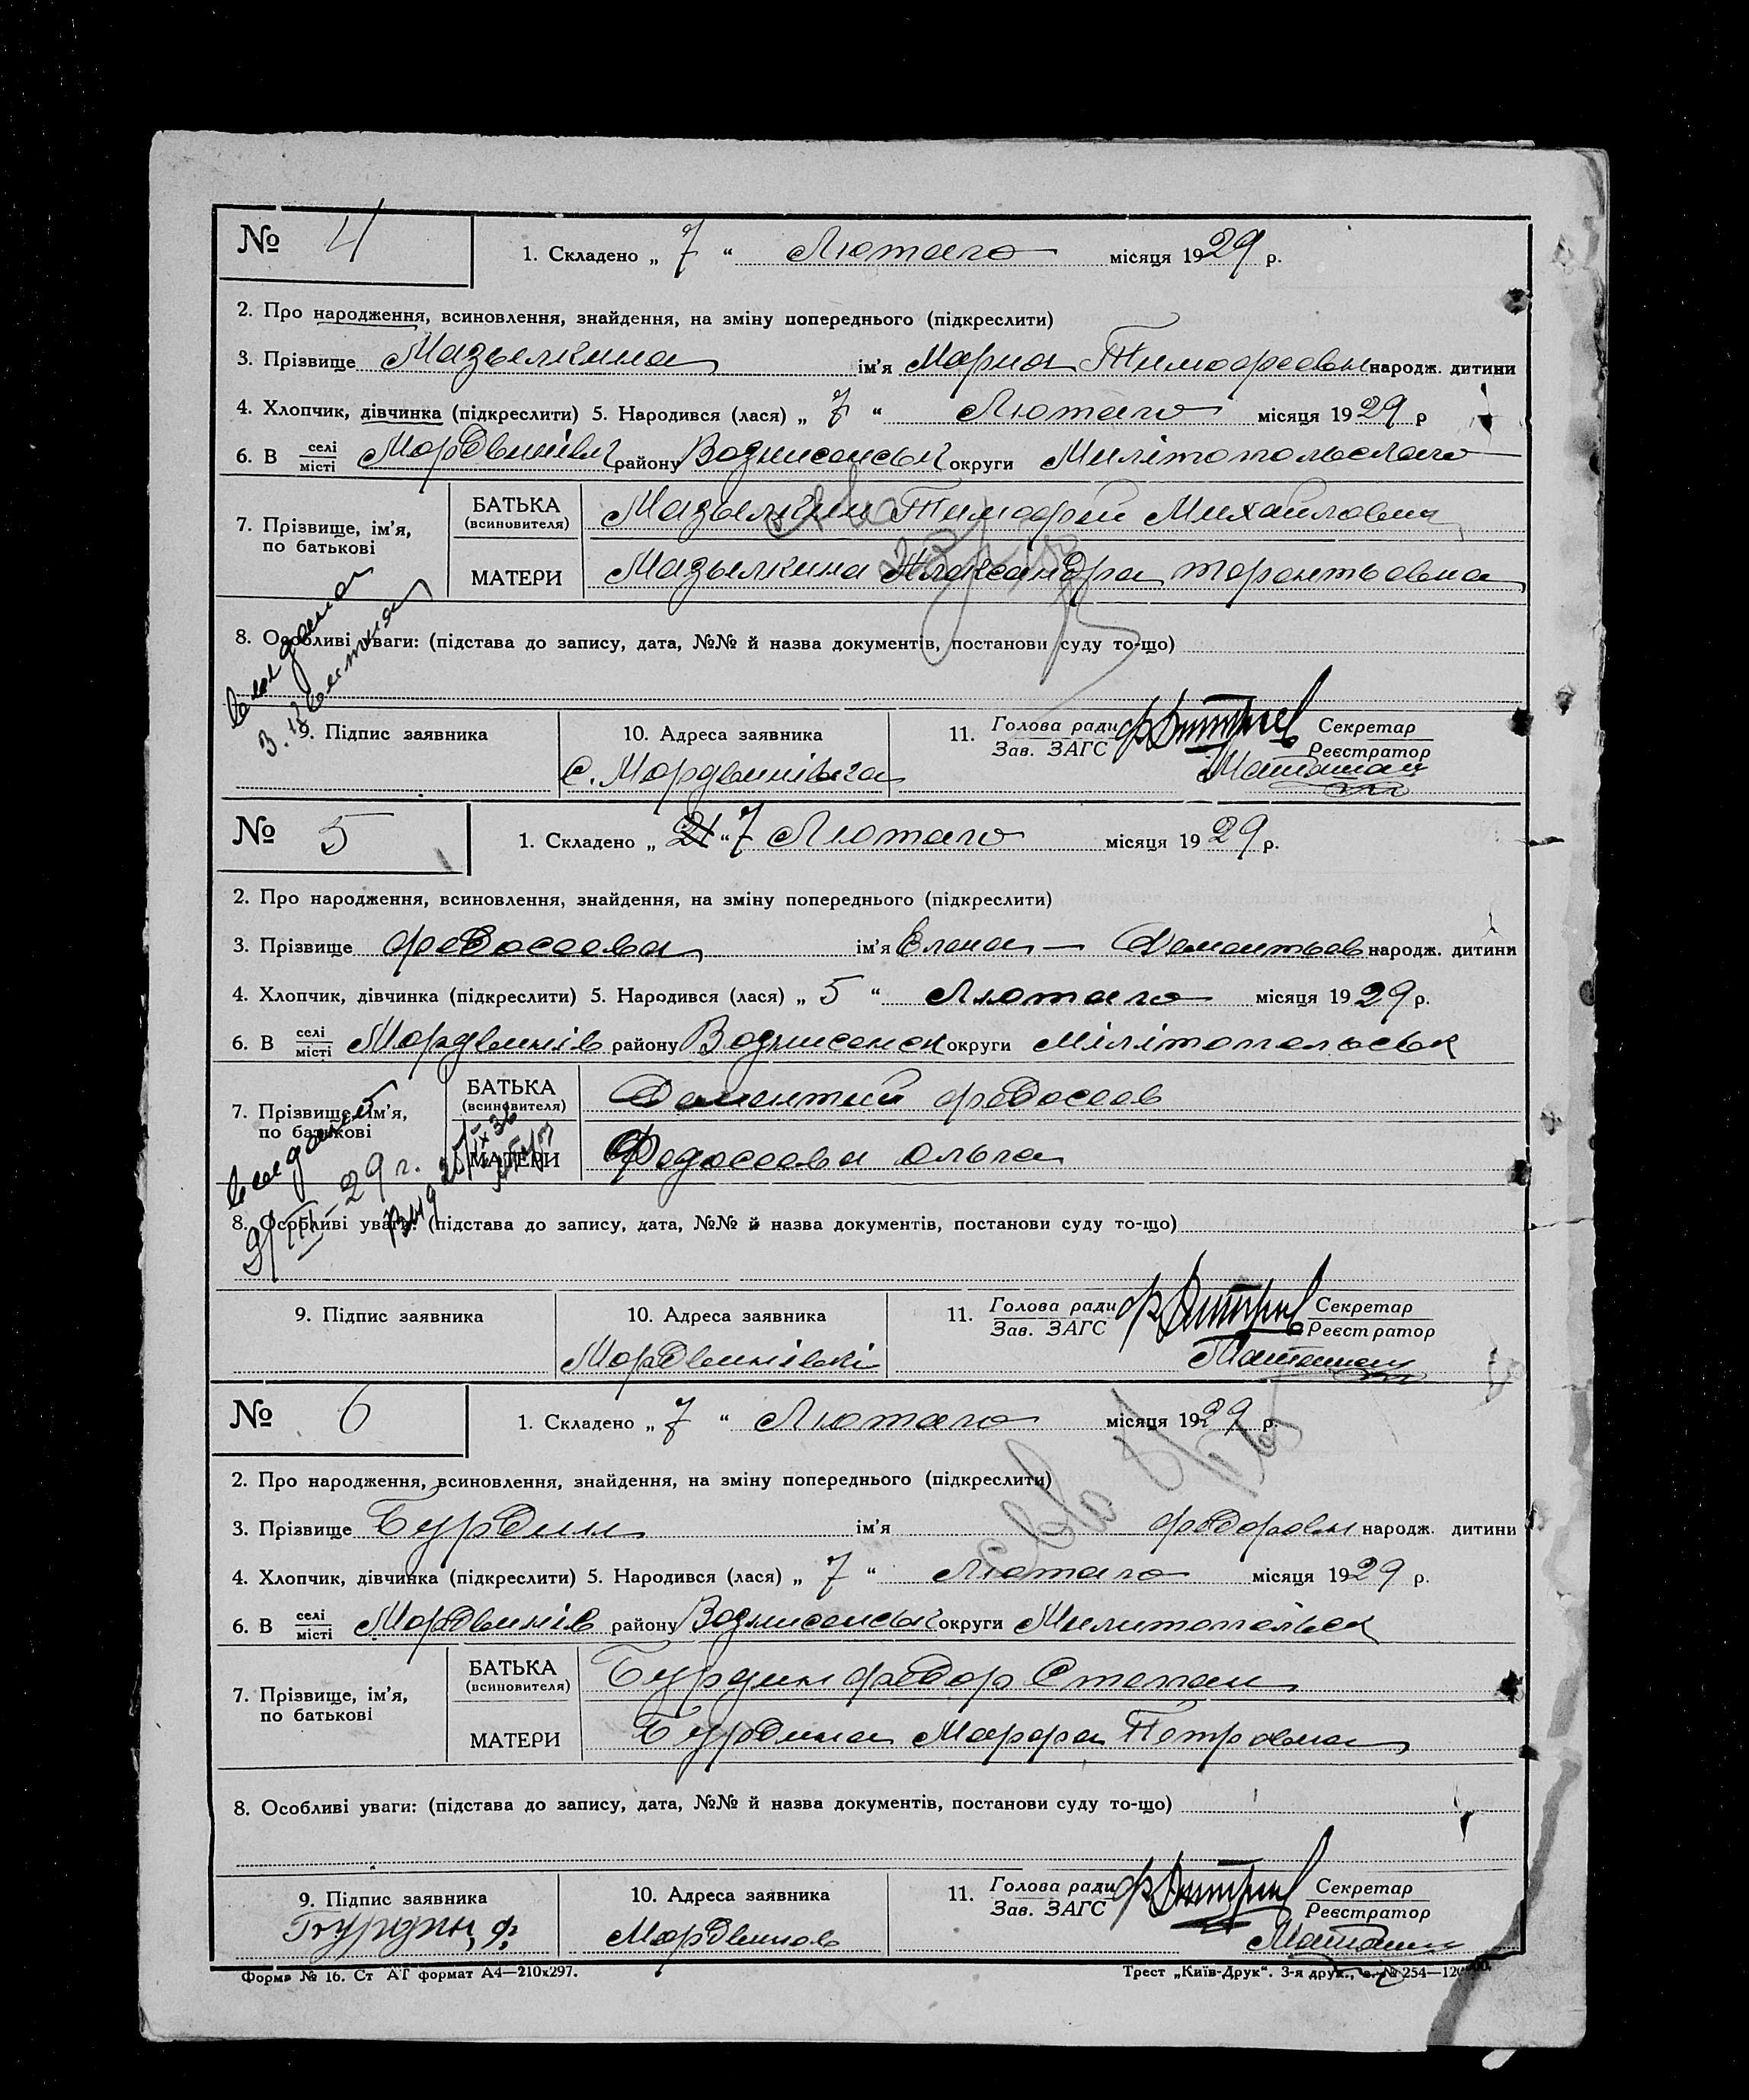 № 4 1. Складено „ 7 “ Лютаго місяця 1929 р.
2. Про народження, всиновлення, знайдення, на зміну попереднього (підкреслити)
3. Прізвище Мазылкина ім’я Мария Тимофеевн народж. дитини
4. Хлопчик, дівчинка (підкреслити) 5. Народився (лася) „ 7 “ Лютаго місяця 1929 р
6. В селі місті Мордвинівк району Вознисенськ округи Милітопольского
7. Прізвище, ім’я, по батькові
БАТЬКА (всиновителя) Мазылкин Тимофей Михайлович
МАТЕРИ Мазылкина Александра
8. Особливі уваги: (підстава до запису, дата, №№ й назва документів, постанови суду то-що)
9. Підпис заявника
10. Адреса заявника
с. Мордвинівка
11. Голова ради Зав. ЗАГС Секретар Реєстратор
№ 5 1. Складено „ 21 “ 7 Лютаго місяця 1929 р.
2. Про народження, всиновлення, знайдення, на зміну попереднього (підкреслити)
3. Прізвище Федосеева ім’я Елена — Дементьев народж. дитини
4. Хлопчик, дівчинка (підкреслити) 5. Народився (лася) „ 5 “ Лютаго місяця 1929 р.
6. В селі місті Мордвинів району Вознисенск округи Мілітопольськ
7. Прізвище, ім’я, по батькові
БАТЬКА (всиновителя) Дементий Федосеев
МАТЕРИ Федосеева Ольга
8. Особливі уваги: (підстава до запису, дата, №№ й назва документів, постанови суду то-що)
9. Підпис заявника
10. Адреса заявника
Мордвинівкі
11. Голова ради Зав. ЗАГС Секретар Реєстратор
№ 6 1. Складено „ 7 “ Лютаго місяця 1929 р.
2. Про народження, всиновлення, знайдення, на зміну попереднього (підкреслити)
3. Прізвище Бурдин ім’я Федоровн народж. дитини
4. Хлопчик, дівчинка (підкреслити) 5. Народився (лася) „ 7 “ Лютаго місяця 1929 р.
6. В селі місті Мордвинів району Вознисенськ округи Милитопольск
7. Прізвище, ім’я, по батькові
БАТЬКА (всиновителя) Бурдин Федор Степан
МАТЕРИ Бурдина Марфа Петровна
8. Особливі уваги: (підстава до запису, дата, №№ й назва документів, постанови суду то-що)
9. Підпис заявника
Бурдин Ф.
10. Адреса заявника
Мордвинов
11. Голова ради Зав. ЗАГС Секретар Реєстратор
Форма № 16. Ст АГ формат А4—210х297.
Трест „Київ-Друк“. 3-я друк., з. № 254—